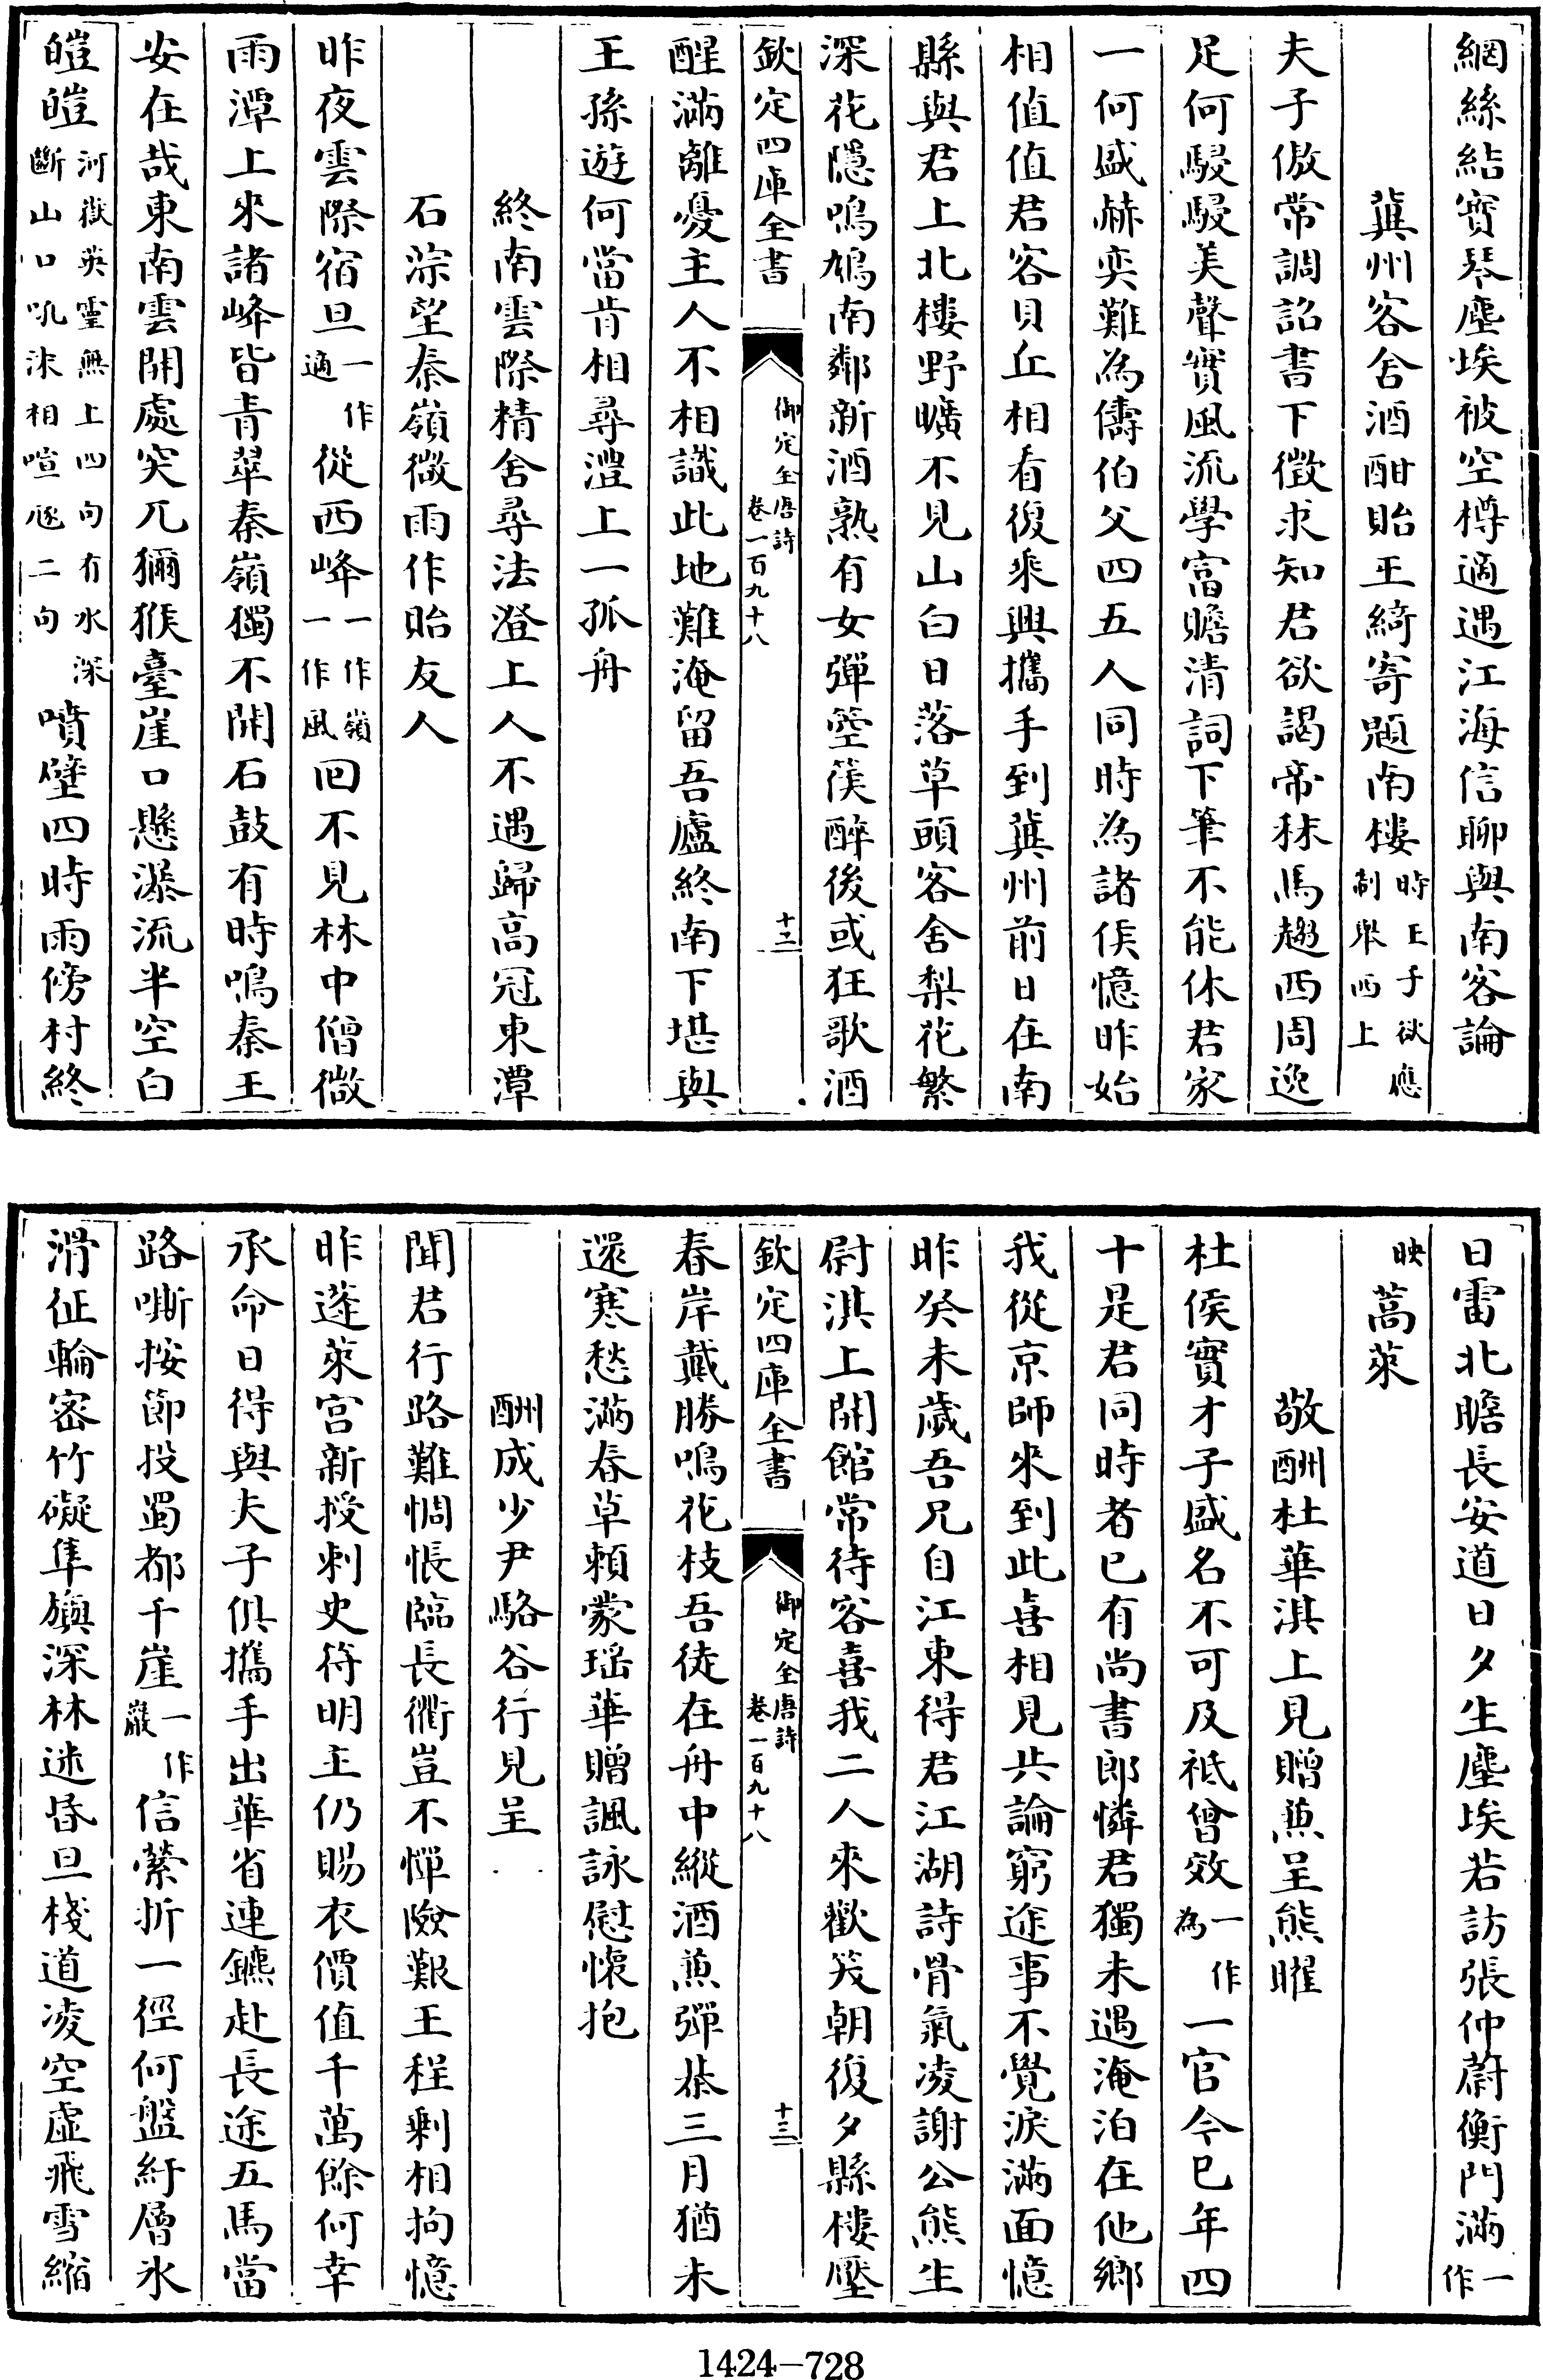 網絲結寶琴塵埃被空樽適遇江海信聊與南客論
冀州客舍酒酣貽王綺寄題南樓時王子欲應制舉西上
夫子傲常調詔書下徵求知君欲謁帝秣馬趨西周逸
足何駸駸美聲實風流學富贍清詞下筆不能休君家
一何盛赫奕難為儔伯父四五人同時為諸侯憶昨始
相值值君客貝丘相看復乘興攜手到冀州前日在南
縣與君上北樓野曠不見山白日落草頭客舍梨花繁
深花隱鳴鳩南鄰新酒熟有女彈箜篌醉後或狂歌酒
欽定四庫全書
御定全唐詩
卷一百九十八
十二
醒滿離憂主人不相識此地難淹留吾廬終南下堪與
王孫遊何當肯相尋澧上一孤舟
終南雲際精舍尋法澄上人不遇歸高冠東潭
石淙望秦嶺微雨作貽友人
昨夜雲際宿旦一作適從西峰一作嶺一作風回不見林中僧微
雨潭上來諸峰皆青翠秦嶺獨不開石鼓有時鳴秦王
安在哉東南雲開處突兀獼猴臺崖口懸瀑流半空白
皚皚河嶽英靈無上四句有水深斷山口吼沫相喧豗二句噴壁四時雨傍村終
日雷北瞻長安道日夕生塵埃若訪張仲蔚衡門滿一作
映蒿萊
敬酬杜華淇上見贈兼呈熊曜
杜侯實才子盛名不可及祗曾效一作為一官今已年四
十是君同時者已有尚書郎憐君獨未遇淹泊在他鄉
我從京師來到此喜相見共論窮途事不覺淚滿面憶
昨癸未歲吾兄自江東得君江湖詩骨氣凌謝公熊生
尉淇上開館常待客喜我二人來歡笑朝復夕縣樓壓
欽定四庫全書
御定全唐詩
卷一百九十八
十三
春岸戴勝鳴花枝吾徒在舟中縱酒兼彈棊三月猶未
還寒愁滿春草賴蒙瑶華贈諷詠慰懷抱
酬成少尹駱谷行見呈
聞君行路難惆悵臨長衢豈不憚險艱王程剩相拘憶
昨蓬萊宮新授刺史符明主仍賜衣價值千萬餘何幸
承命日得與夫子俱攜手出華省連鑣赴長途五馬當
路嘶按節投蜀都千崖一作巖信縈折一徑何盤紆層氷
滑征輪密竹礙隼旟深林迷昏旦棧道凌空虛飛雪縮
1424-728